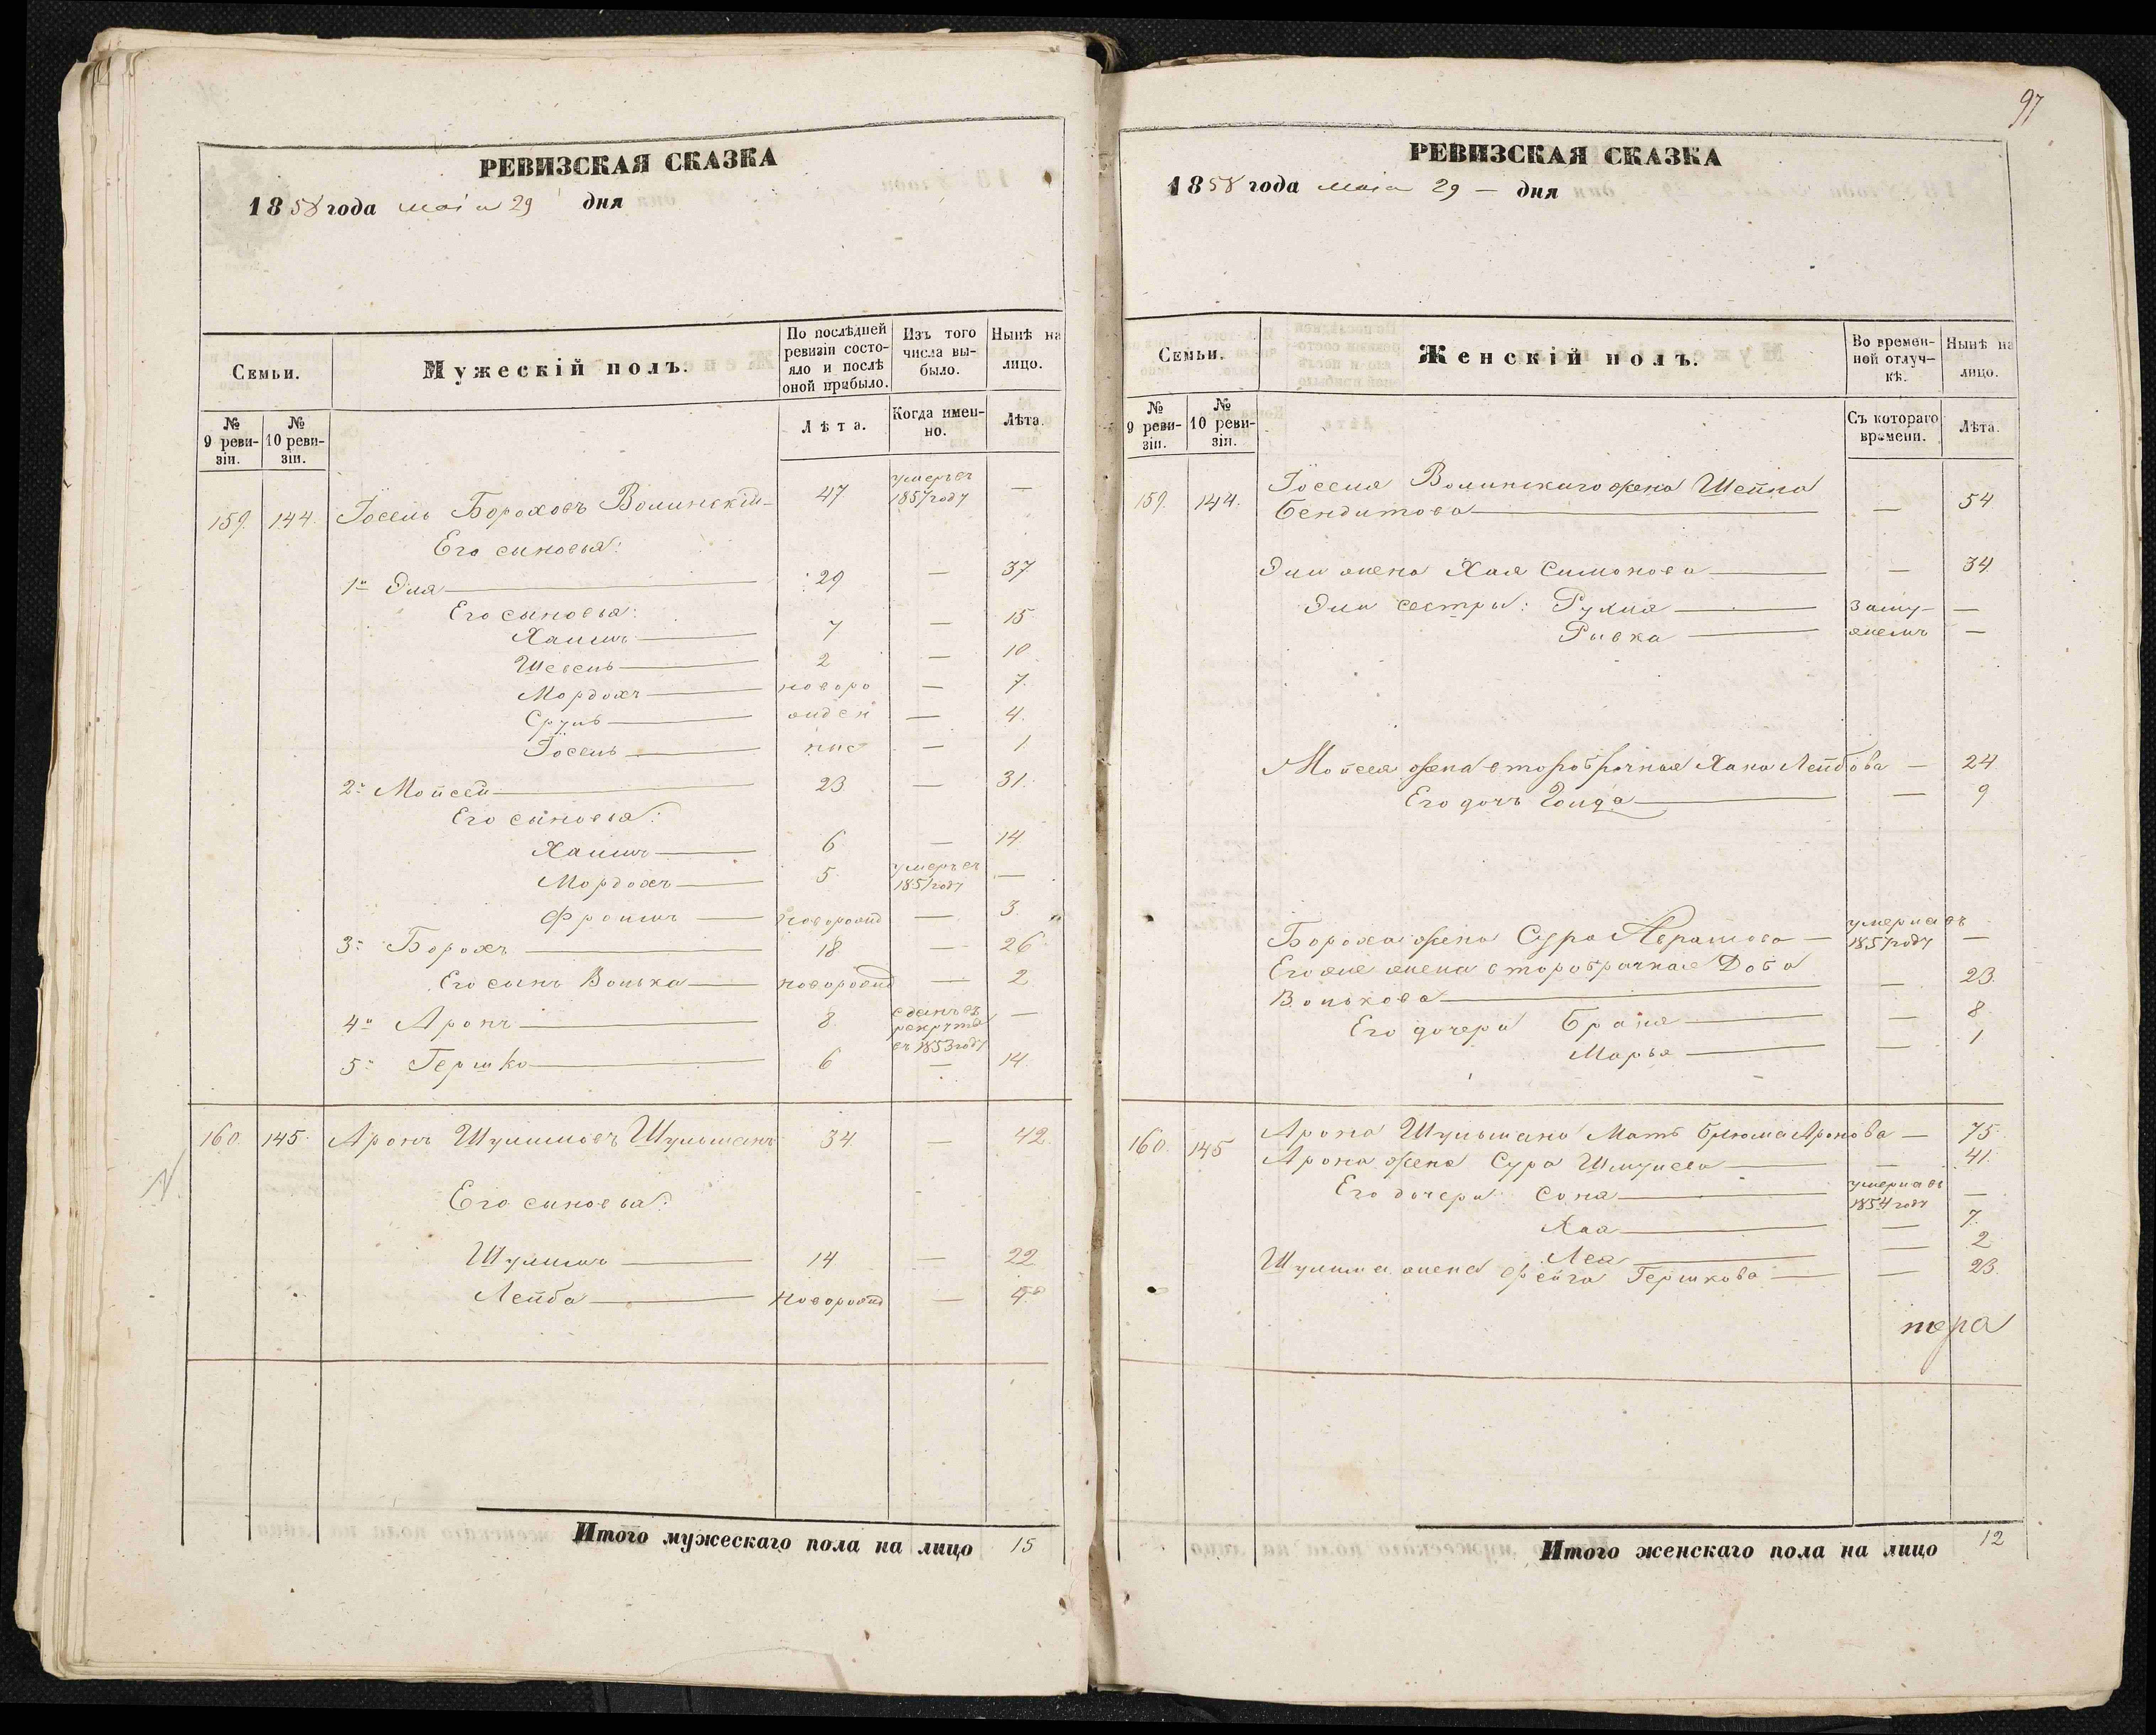 97
РЕВИЗСКАЯ СКАЗКА
1858 года маія 29 дня
Семьи.
Мужескій полъ.
По послѣдней ревизіи состо-яло и послѣ оной прибыло.
Изъ того числа вы-было.
Нынѣ на лицо.
№ 9 реви-зіи.
№ 10 реви-зіи.
Лѣта.
Когда имен-но.
Лѣта.
159. 144. Іосель Бороховъ Волинскій 47 умеръ въ 1857 году —
Его сыновья:
1й Эля — 29 — 37
Его сыновья:
Хаимъ — 7 — 15
Шевель — 2 — 10
Мордохъ — новоро — 7.
Сруль — жден — 4.
Іосель — ные — 1
2й Мойсей — 23 — 31.
Его сыновья:
Хаимъ — 6 — 14
Мордохъ — 5 умеръ въ 1851 году —
Фроимъ — новорожд — 3.
3й Борохъ — 18 — 26
Его сынъ Волька — новорожд — 2
4й Аронъ — 8. сданъ въ рекруты въ 1853 году —
5й Гершко — 6 — 14
160. 145. Аронъ Шулимовъ Шульманъ 34 — 42.
Его сыновья:
Шулимъ — 14 — 22
Лейба — новорожд — 4
Итого мужескаго пола на лицо 15
РЕВИЗСКАЯ СКАЗКА
1858 года маія 29 — дня
Семьи.
Женскій полъ.
Во времен-ной отлуч-кѣ.
Нынѣ на лицо.
№ 9 реви-зіи.
№ 10 реви-зіи.
Съ котораго времени.
Лѣта.
159. 144. Іоселя Волинскаго жена Шейна
Бендитова — — 54
Эли жена Хая Симонова — — 34
Эли сестры: Рухля — заму- —
Ривка — жемъ —
Мойсея жена второбрачная Хана Лейбова — 24
Его дочь Голда — — 9
Бороха жена Сура Аврамова — умерла въ 1857 году —
Его же жена второбрачная Доба
Волькова — — 23.
Его дочери Браня — — 8.
Марья — — 1
160. 145 Арона Шульмана Мать Блюма Аронова — 75.
Арона жена Сура Шмулева — — 41.
Его дочери: Соня — умерла въ 1854 году —
Хая — — 7.
Лея — — 2
Шулима жена Фейга Гершкова — — 23.
Итого женскаго пола на лицо 12